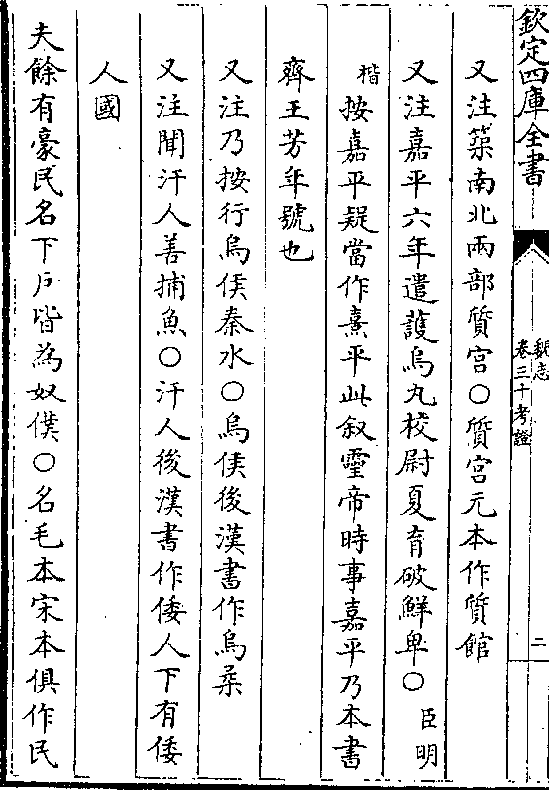 欽定四庫全書
魏志
卷三十考證
二
又注築南北兩部質宫○質宫元本作質館
又注嘉平六年遣護烏丸校尉夏育破鮮卑○臣明
楷按嘉平疑當作熹平此叙靈帝時事嘉平乃本書
齊王芳年號也
又注乃按行烏侯秦水○烏侯後漢書作烏集
又注聞汗人善捕魚○汗人後漢書作倭人下有倭
人國
夫餘有豪民名下戶皆為奴僕○名毛本宋本俱作民